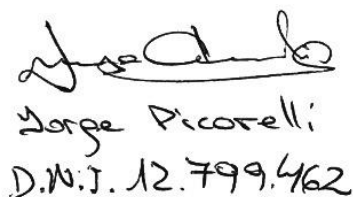 Jorge Piccorelli
D.N.I. 12.799.462